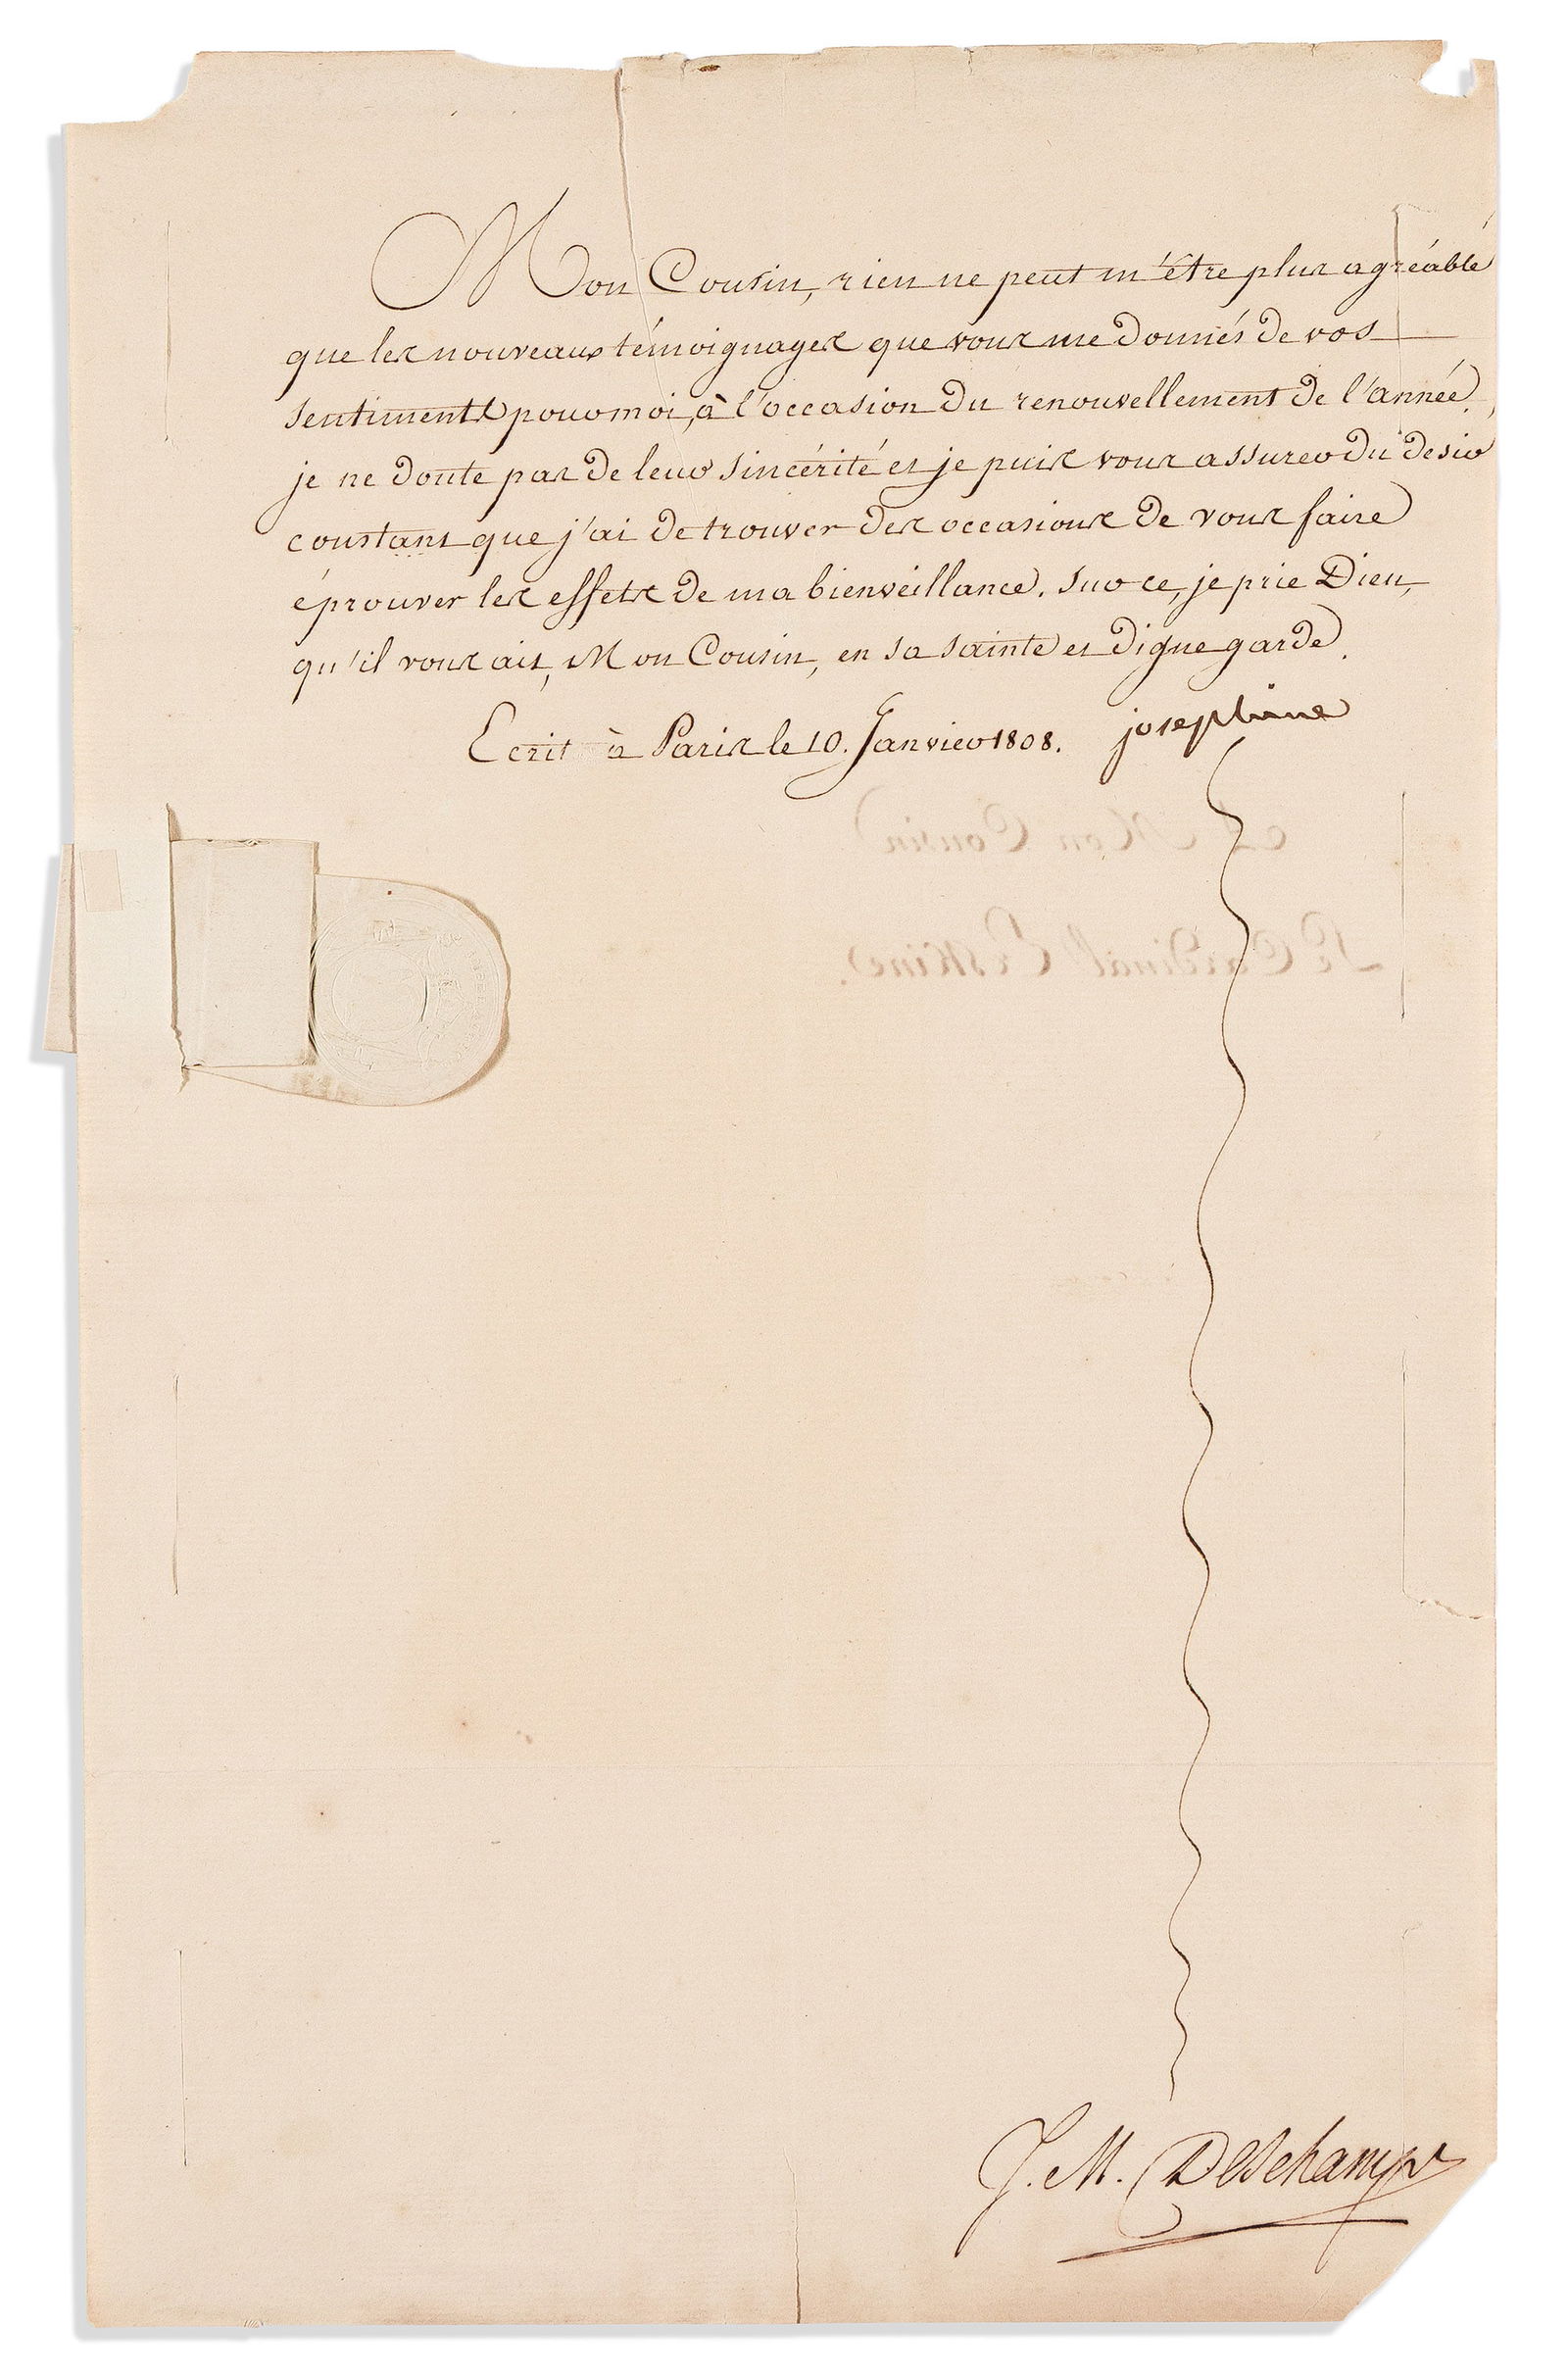 Mon Cousin, rien ne peut m'être plus agréable
que les nouveaux témoignages que vous me donnés de vos
sentiments pour moi, à l'occasion du renouvellement de l'année.
je ne doute pas de leur sincérité et je puis vous assurer du desir
constant que j'ai de trouver des occasions de vous faire
éprouver les effets de ma bienveillance. Sur ce, je prie Dieu,
qu'il vous ait, Mon Cousin, en sa sainte et digne garde.
Ecrit à Paris le 10. Janvier 1808. josephine
A Mon Cousin
Le Cardinal Erskine.
J. M. Deschamps